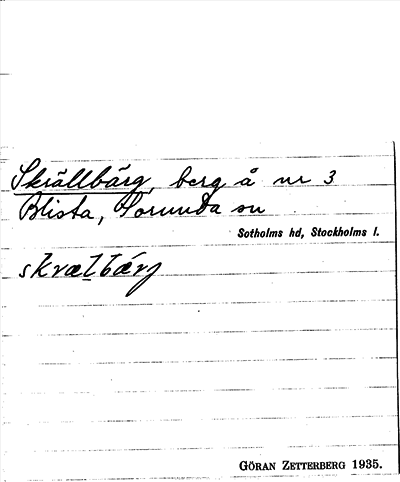 Skrällbärg, berg å nr 3
Blista, Sorunda sn
Sotholms hd, Stockholms l.
skræl̠bárj
GÖRAN ZETTERBERG 1935.